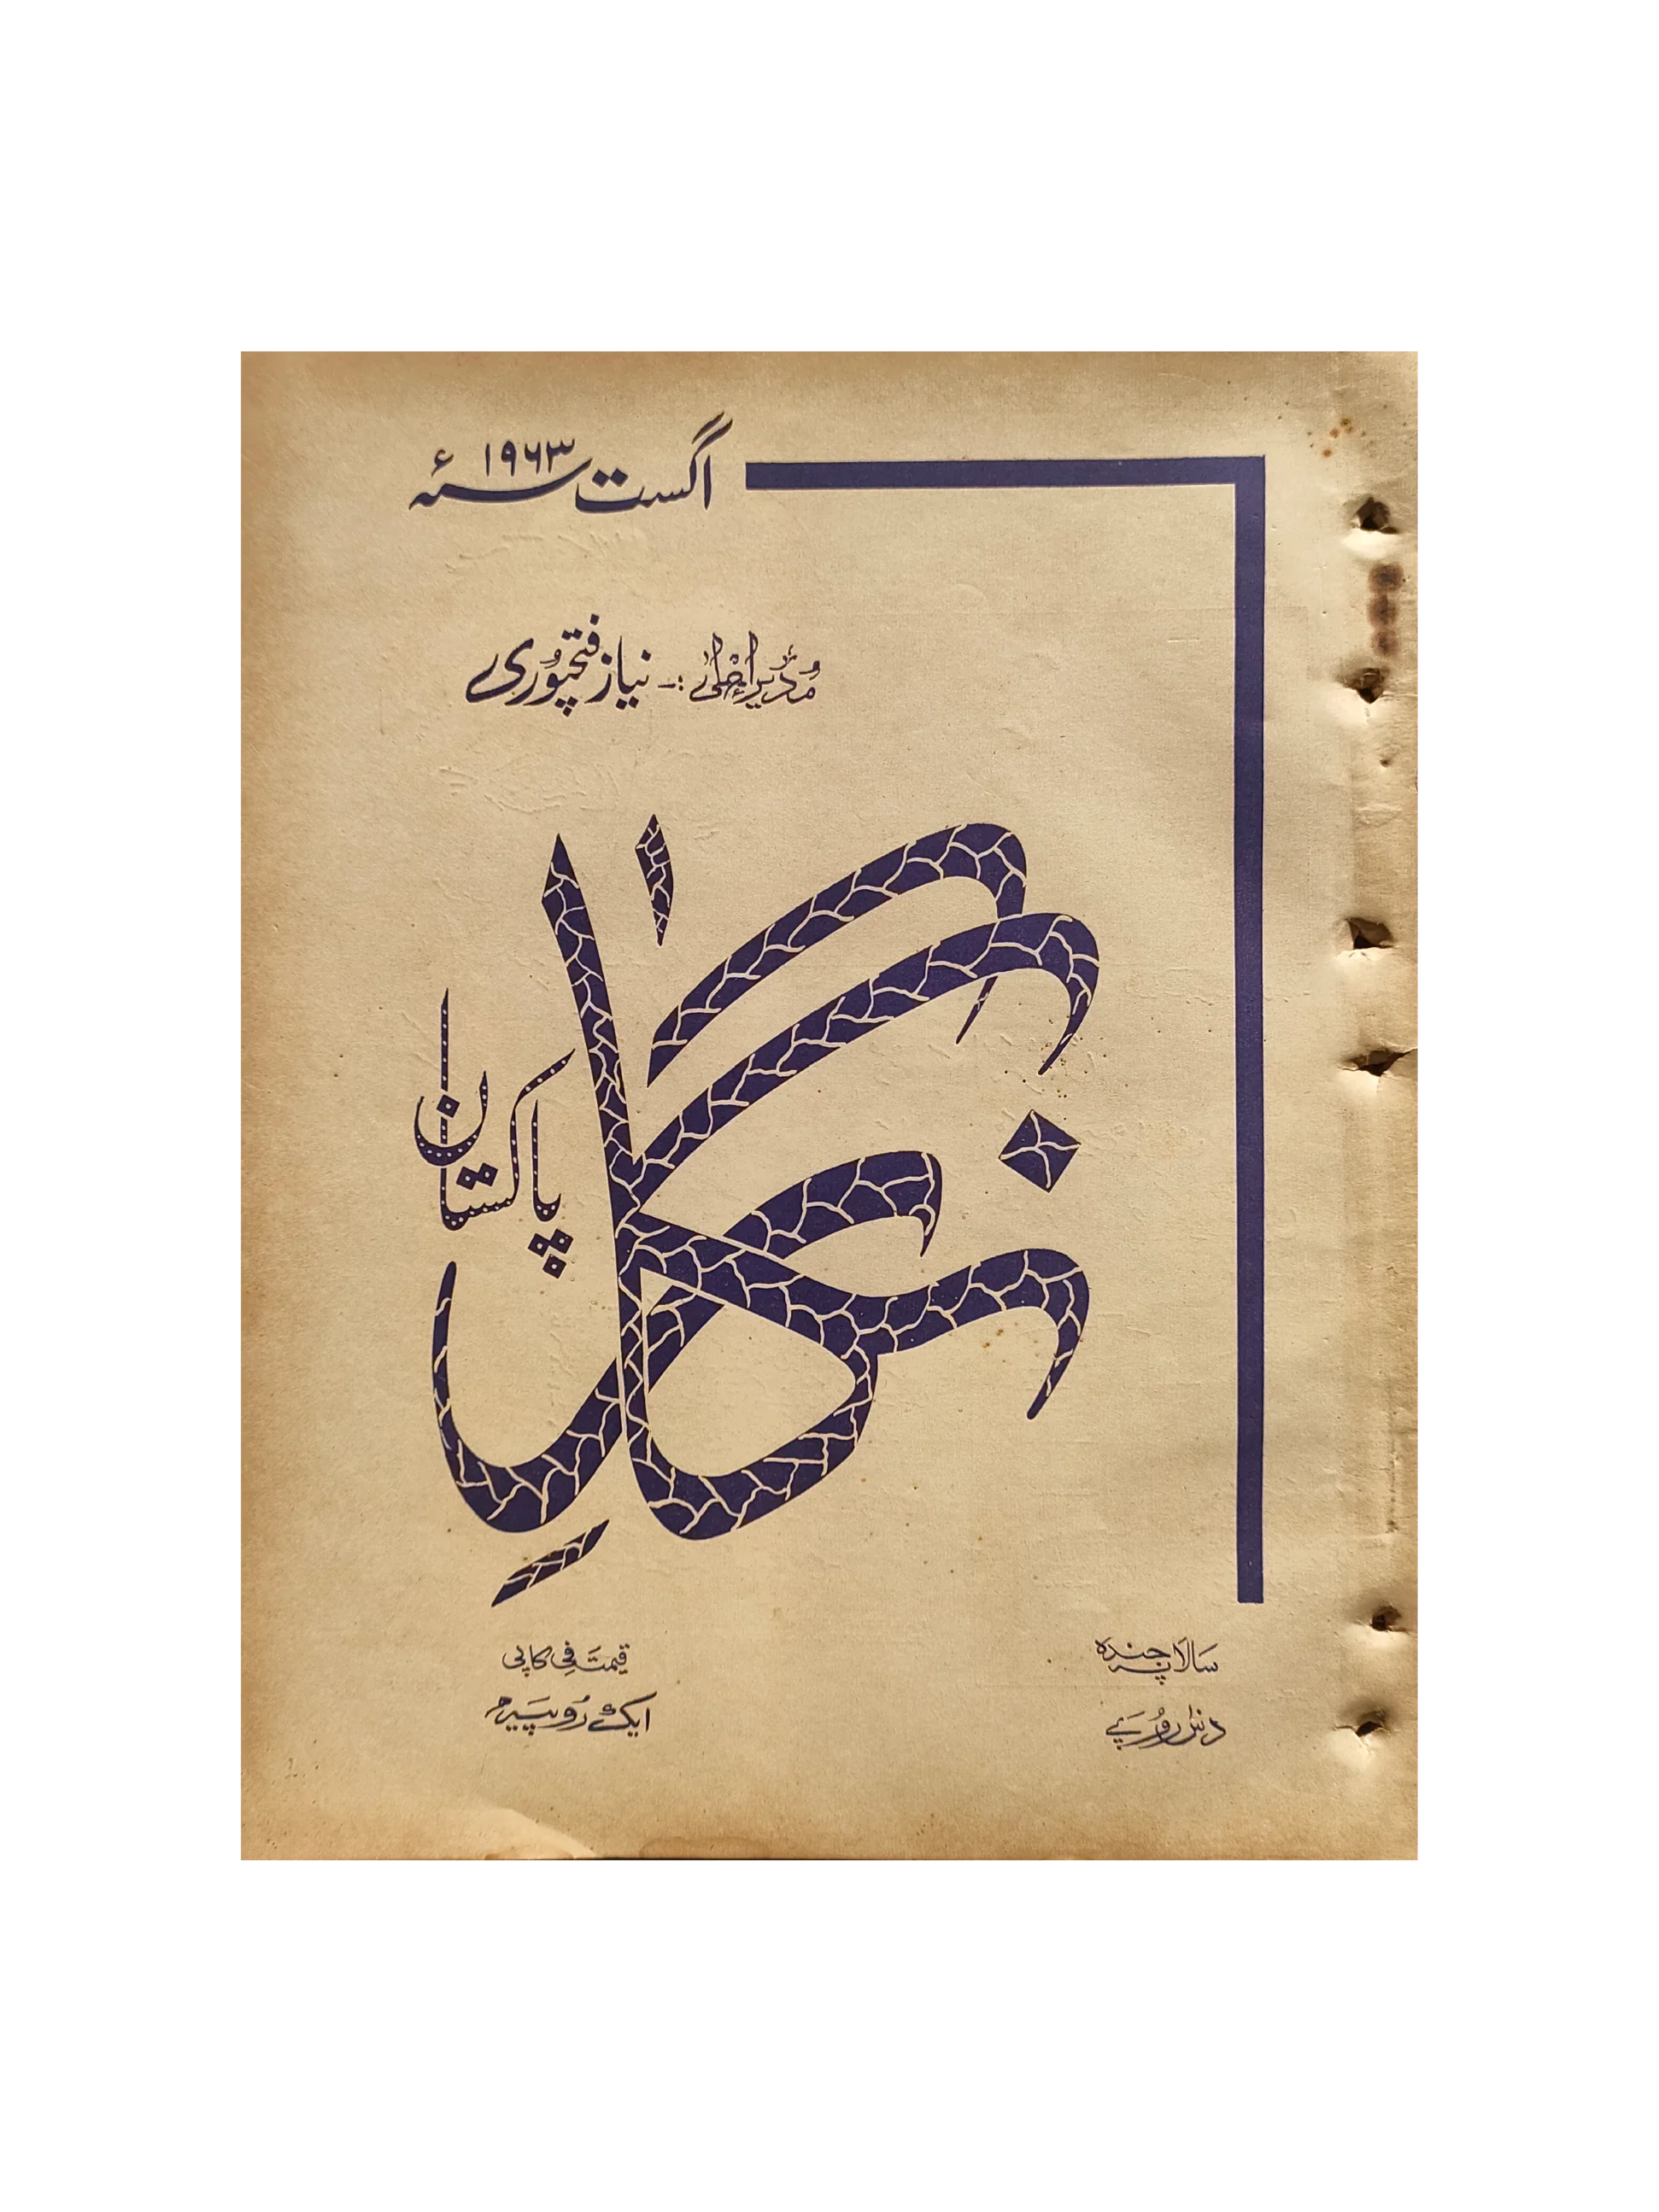 اگست ۱۹۶۳ء
مدیر اعلیٰ :- نیاز فتحپوری
نگار
پاکستان
سالانہ چندہ
دس روپے
قیمت فی کاپی
ایک روپیہ